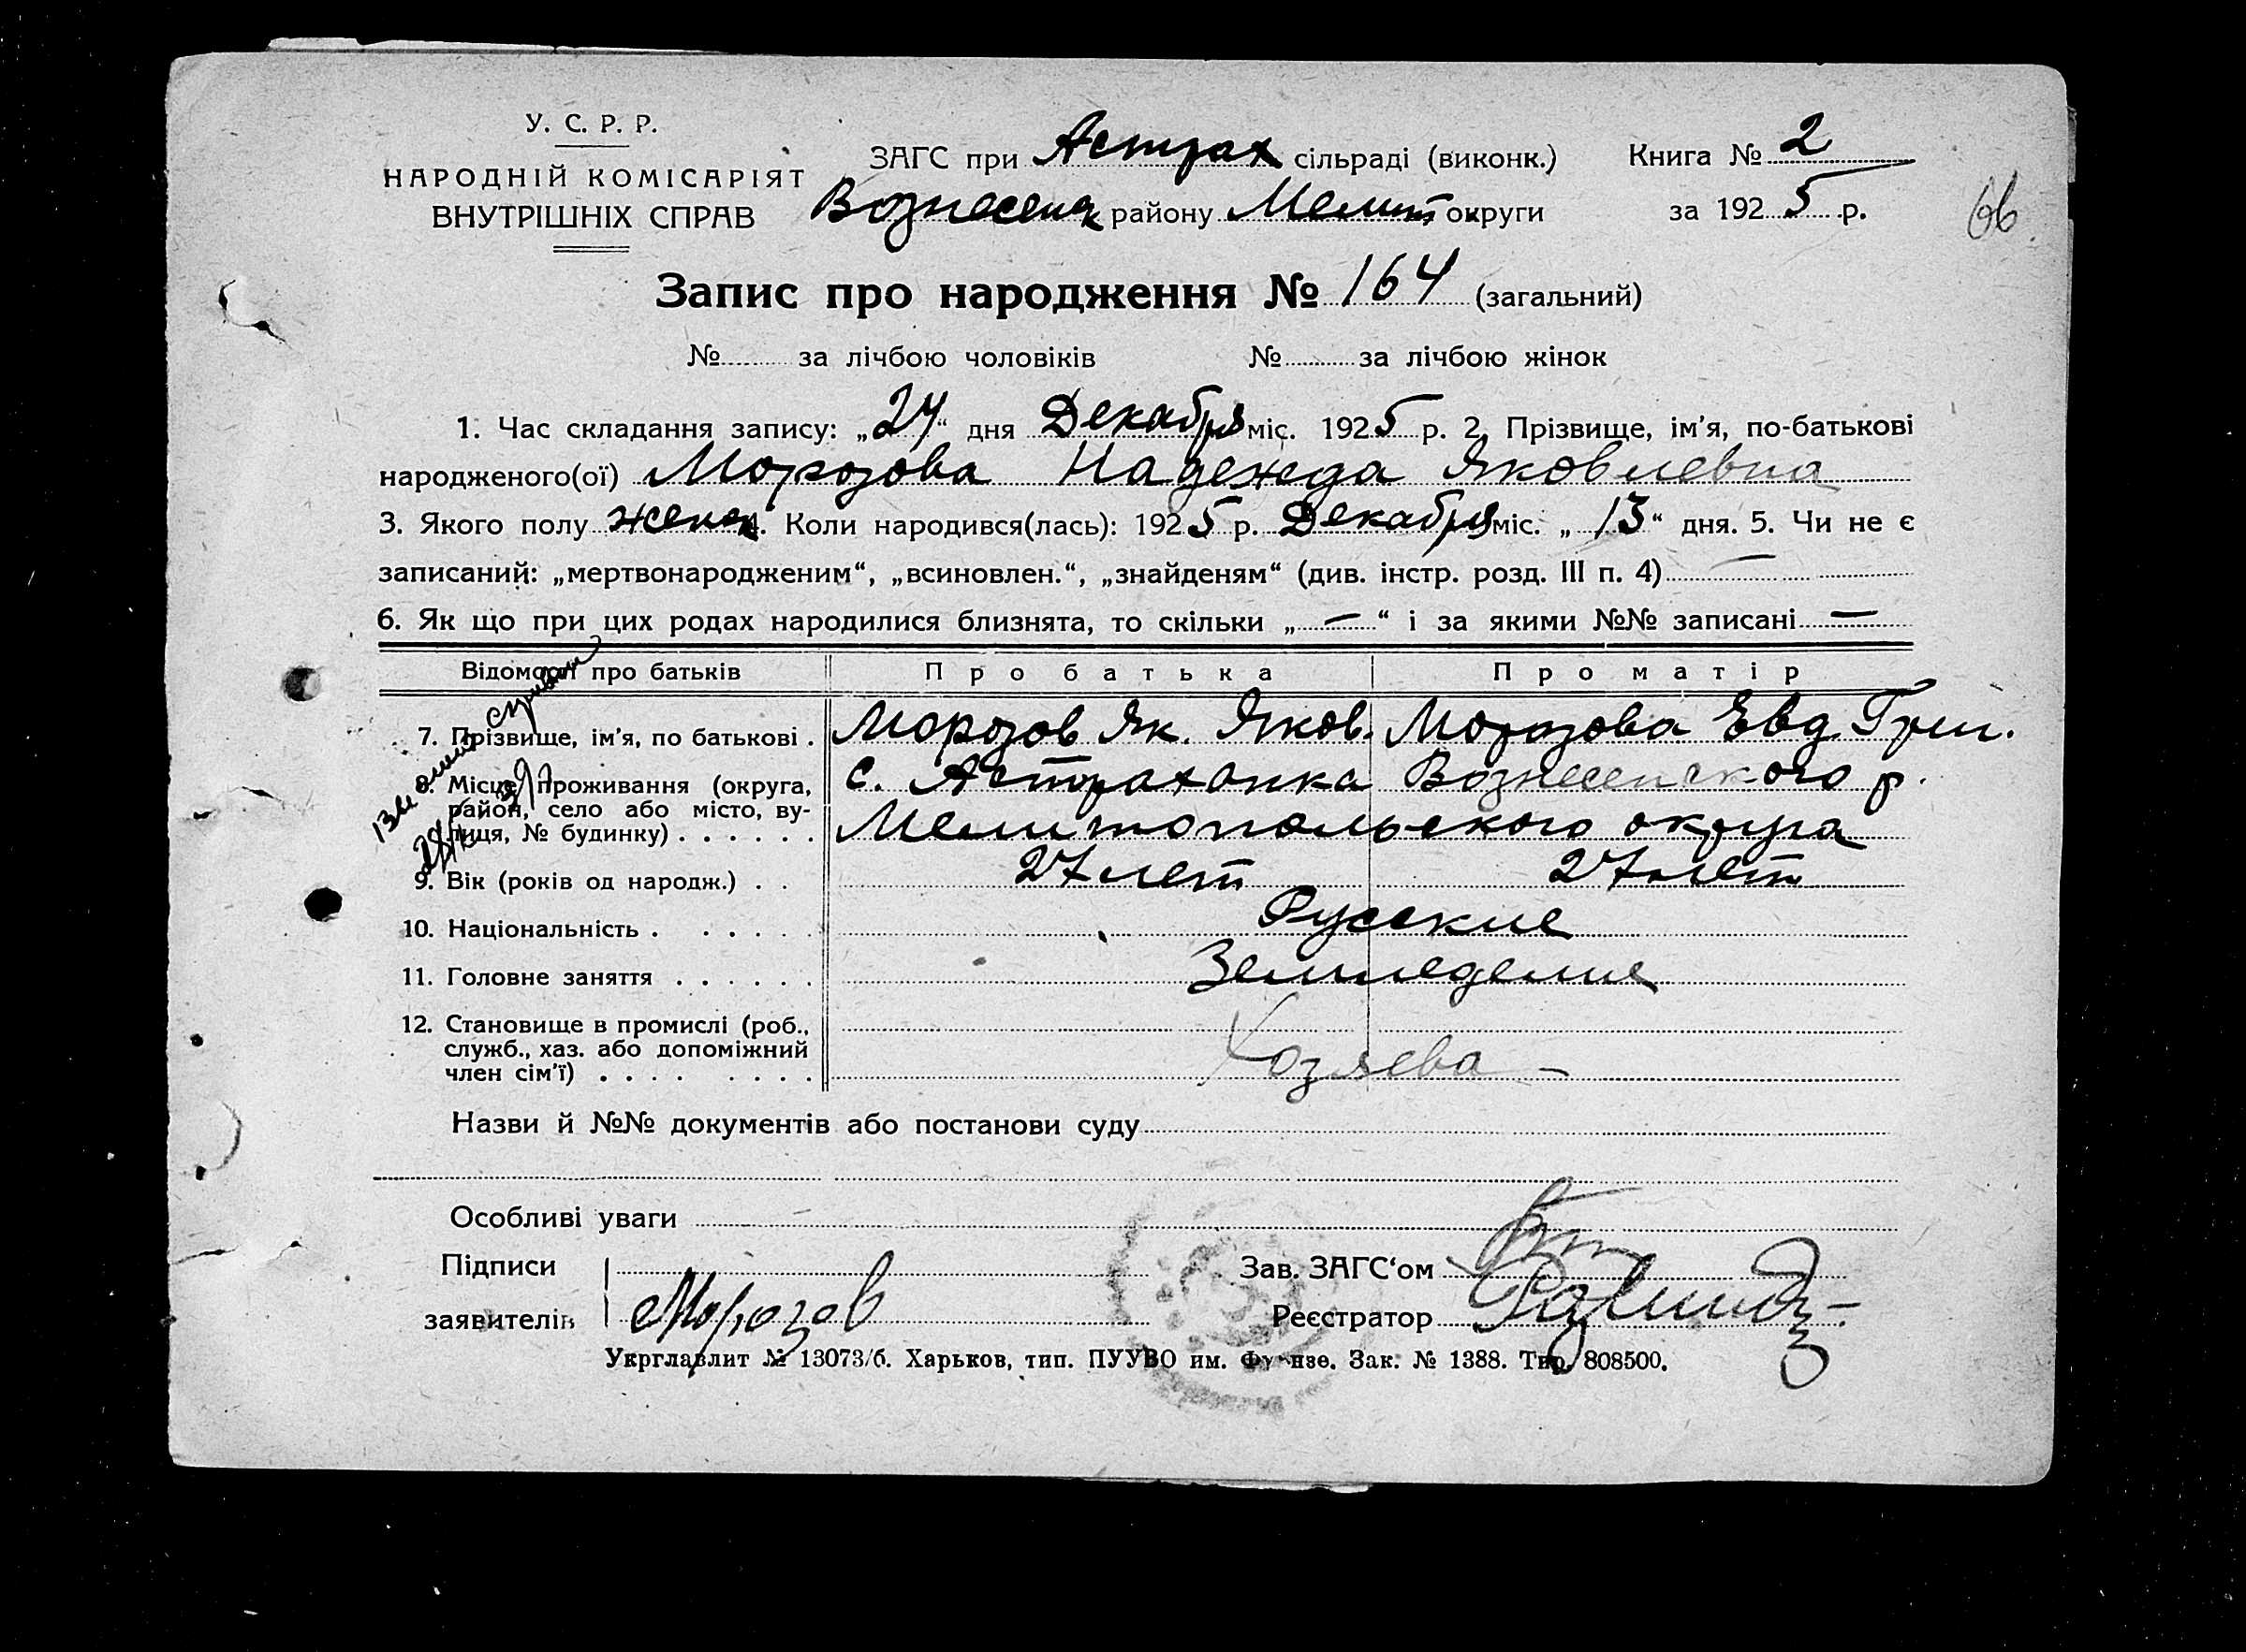 У. С. Р. Р.
НАРОДНІЙ КОМІСАРІЯТ
ВНУТРІШНІХ СПРАВ
ЗАГС при Астрах сільраді (виконк.)
Вознесенк району Мелит округи
Книга № 2
за 1925 р.
66
Запис про народження № 164 (загальний)
№ за лічбою чоловіків № за лічбою жінок
1. Час складання запису: „24“ дня Декабря міс. 1925 р. 2. Прізвище, ім’я, по-батькові
народженого(ої) Морозова Надежда Яковлевна
3. Якого полу женск 4. Коли народився(лась): 1925 р. Декабря міс. „13“ дня. 5. Чи не є
записаний: „мертвонародженим“, „всиновлен.“, „знайденям“ (див. інстр. розд. III п. 4) —
6. Як що при цих родах народилися близнята, то скільки „—“ і за якими №№ записані —
Відомости про батьків Про батька Про матір
7. Прізвище, ім’я, по батькові . Морозов Як. Яков. Морозова Евд. Григ.
8. Місце проживання (округа, с. Астраханка Вознесенского р.
район, село або місто, ву-
лиця, № будинку) . . . . . . Мелитопольского округа
9. Вік (років од народж.) . . 27 лет 27 лет
10. Національність . . . . . . Русские
11. Головне заняття . . . . . . Земледелие
12. Становище в промислі (роб.,
служб., хаз. або допоміжний
член сім’ї) . . . . . . . . Хозяева —
Назви й №№ документів або постанови суду
Особливі уваги
Підписи
заявителів Морозов
Зав. ЗАГС‘ом
Реєстратор
Укрглавлит № 13073/б. Харьков, тип. ПУУВО им. Фрунзе. Зак. № 1388. Тир. 808500.